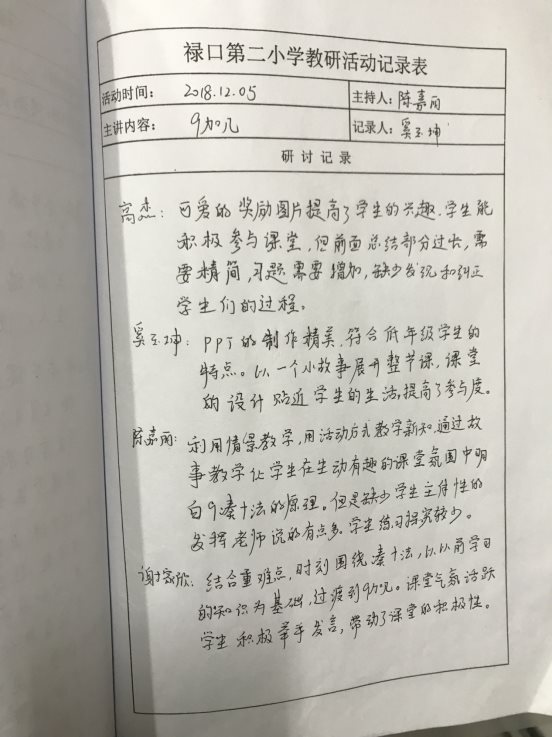 禄口第二小学教研活动记录表
活动时间： 2018.12.05 主持人：陈嘉丽
主讲内容： 9加几 记录人：奚玉坤
研讨记录
高杰：可爱的奖励图片提高了学生的兴趣.学生能
积极参与课堂，但前面总结部分过长，需
要精简，习题需要增加，缺少发现和纠正
学生们的过程。
奚玉坤：PPT的制作精美.符合低年级学生的
特点。以一个小故事展开整节课，课堂
的设计贴近学生的生活,提高了参与度。
陈嘉丽：利用情景教学，用活动方式教学新知，通过故
事教学让学生在生动有趣的课堂氛围中明
白9凑十法的原理。但是缺少学生主体性的
发挥老师说的有点多.学生练习探究较少。
谢家欣：结合重难点，时刻围绕凑十法，以以前学习
的知识为基础，过渡到9加几。课堂气氛活跃
学生积极举手发言，带动了课堂的积极性。